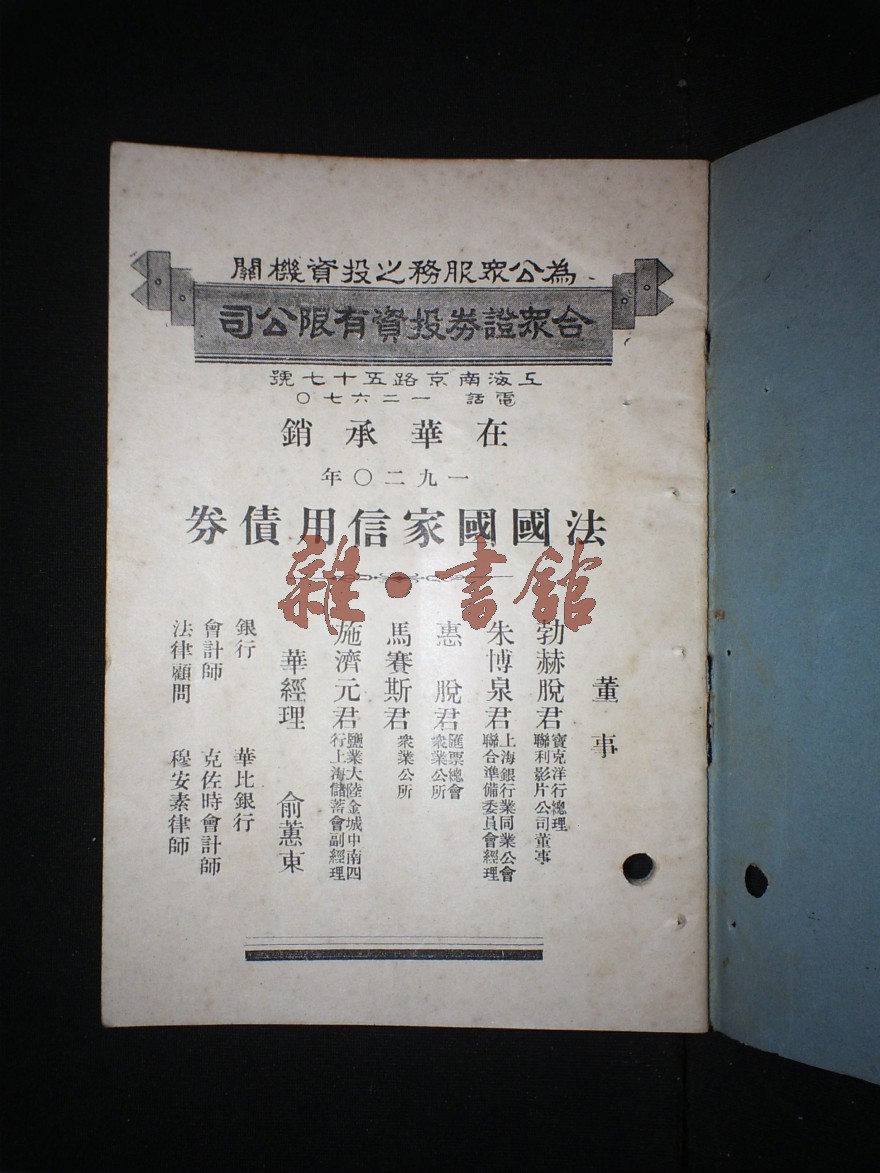 為公眾服務之投資機關
合眾證券投資有限公司
上海南京路五十七號
電話 一二六七〇
在華承銷
一九二〇年
法國國家信用債券
雜·書館
董事
勃赫脫君 寶克洋行總理 聯利影片公司董事
朱博泉君 上海銀行業同業公會 聯合準備委員會經理
惠脫君 匯票總會 眾業公所
馬賽斯君 眾業公所
施濟元君 鹽業大陸金城中南四 行上海儲蓄會副經理
華經理 俞蕙東
銀行 華比銀行
會計師 克佐時會計師
法律顧問 穆安素律師